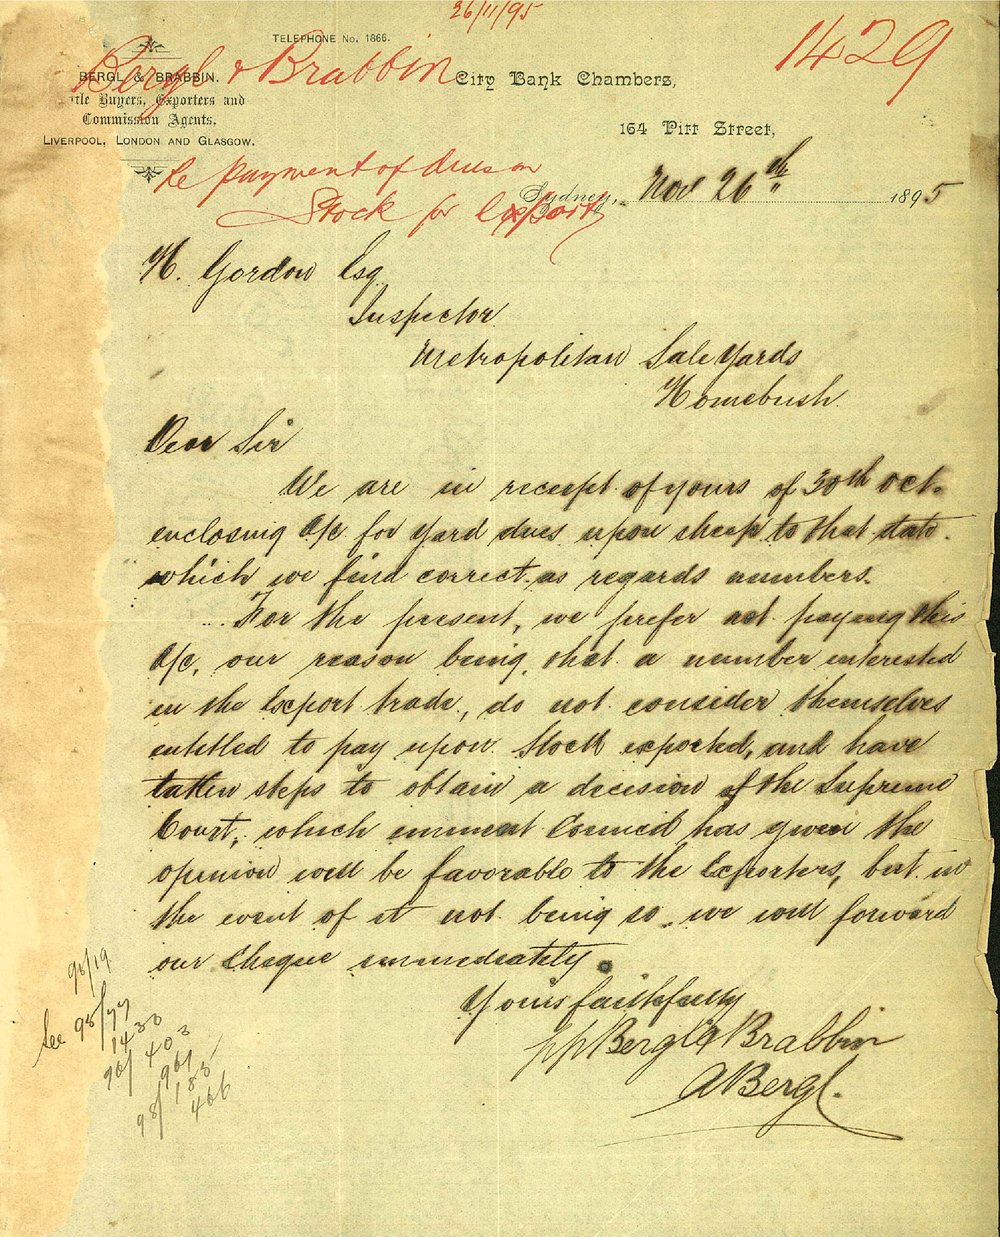 26/11/95
TELEPHONE No. 1866.
1429
Bergl & Brabbin
BERGL & BRABBIN.
City Bank Chambers,
tle Buyers, Exporters and
Commission Agents,
164 Pitt Street,
LIVERPOOL, LONDON AND GLASGOW.
Re payment of dues on
Stock for Export
Sydney, Nov 26th 1895
H. Gordon Esq
Inspector
Metropolitan Sale Yards
Homebush.
Dear Sir
We are in receipt of yours of 30th Oct.
enclosing A/c for yard dues upon sheep to that date.
which we find correct as regards numbers.
For the present, we prefer not paying this
A/c, our reason being, that a number interested
in the Export trade, do not consider themselves
entitled to pay upon Stock exported, and have
taken steps to obtain a decision of the Supreme
Court, which eminent Council has given the
opinion will be favorable to the Exporters, but in
the event of it not being so, we will forward
our Cheque immediately.
Yours faithfully
pp Bergl & Brabbin
A Bergl.
96/19
See 95/77
1430
96/403
961
98/185
466